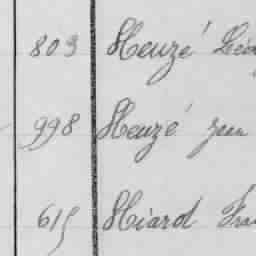 803 Heuzé Léo
998 Heuzé Jean
615 Hiard Fra